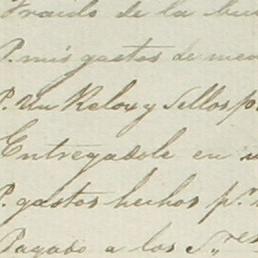 Fraido de la
P. mis gastos de
P. Un Relox y Sellos p
Entregadole en
P. gastos hechos p.r
Pagado a los S.res